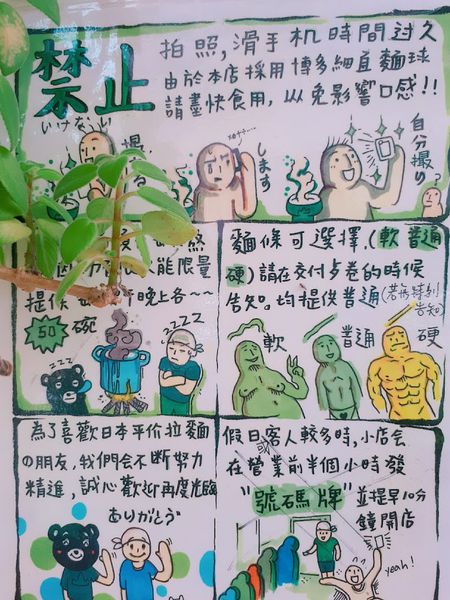 禁止
いけない!
拍照,滑手机時間过久
由於本店採用博多細直麵球
請盡快食用,以免影響口感!!
撮る
します
自分撮り
?
能限量
提供
晚上各~~
50碗
zzz
zzzz
麵條可選擇,(軟 普通
硬)請在交付歺卷的時候
告知。均提供普通(若無特別
告知)
軟
普通
硬
為了喜歡日本平价拉麵
の朋友,我們会不断努力
精進,誠心歡迎再度光臨
ありがとう
假日客人較多時,小店会
或
在營業前半個小時發
"號碼牌"並提早10分
鐘開店
yeah!